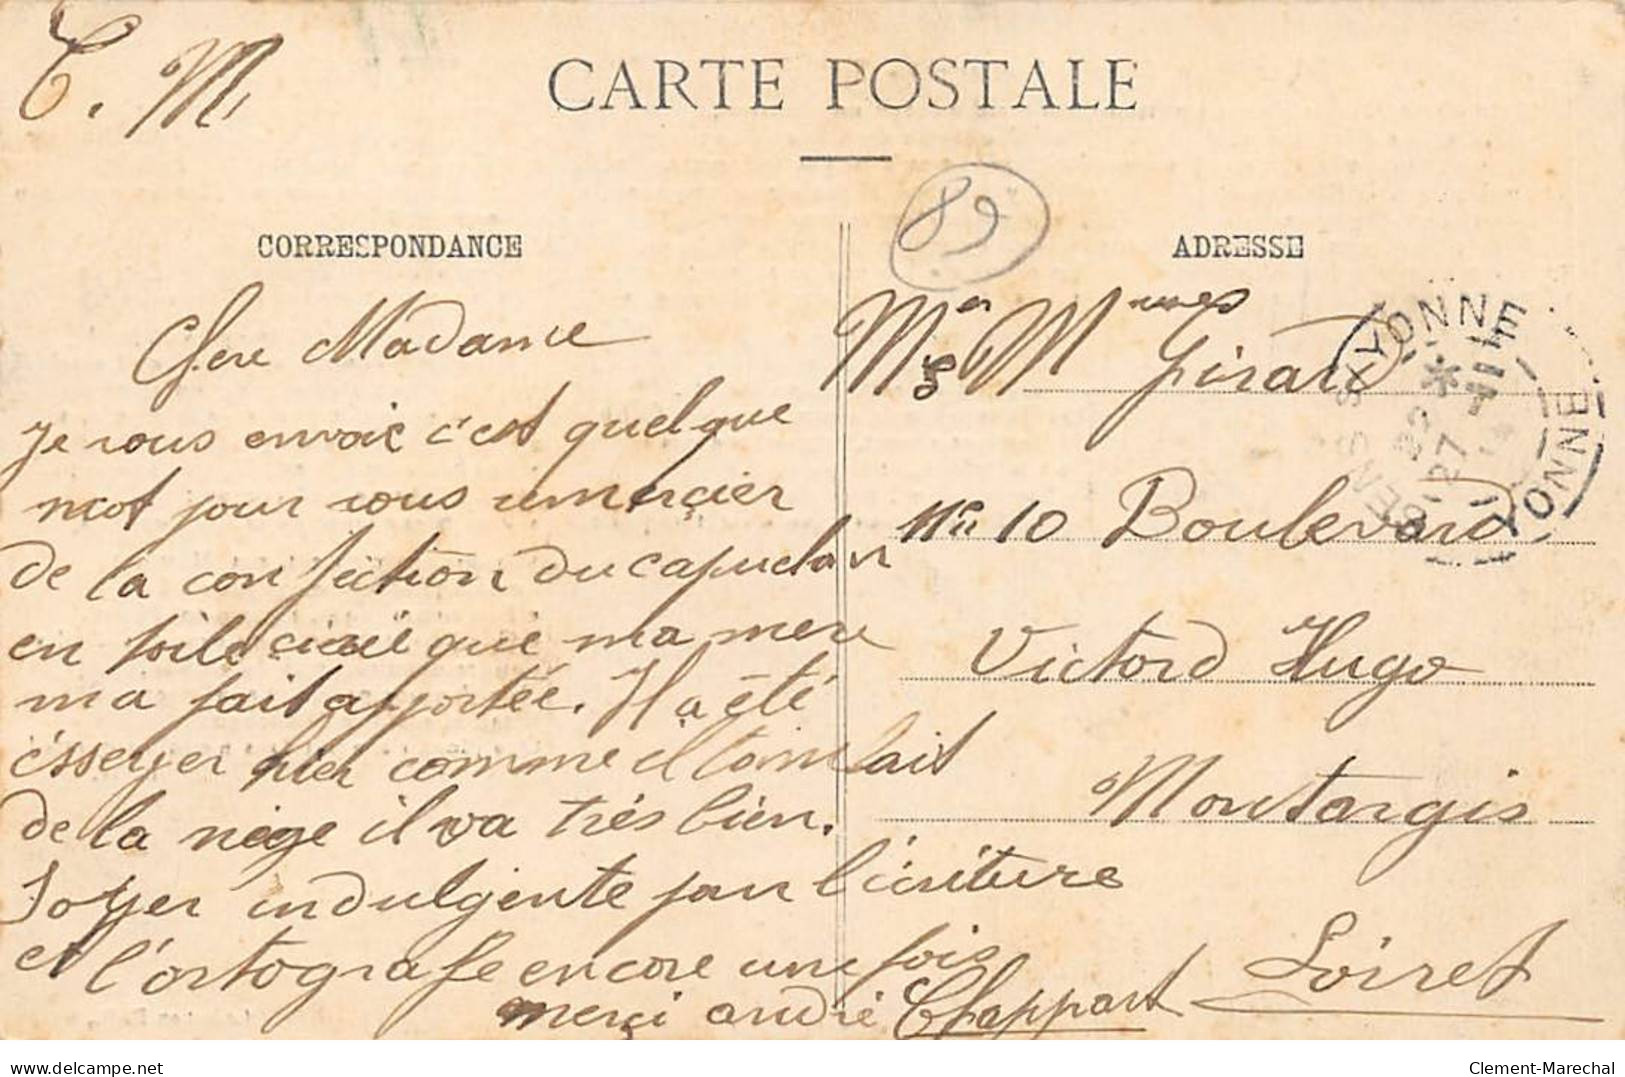 C. M.
CARTE POSTALE
89
CORRESPONDANCE
Chere Madame
je vous envoie c'est quelque
mot pour vous remerçier
de la confection du capuchon
en toile çiree que ma mere
ma fait apportée. Il a été
ésseyer hier comme il tombait
de la nége il va très bien.
Soyer indulgente pour l'écriture
et l'ortografe encore une fois
merçi andré Chappart
ADRESSE
Mr Mmes
Girard
No 10 Boulevard
Victord Hugo
Montargis
Loiret
SENS S/YONNE
27
YONNE
delcampe.net
Clement-Marechal